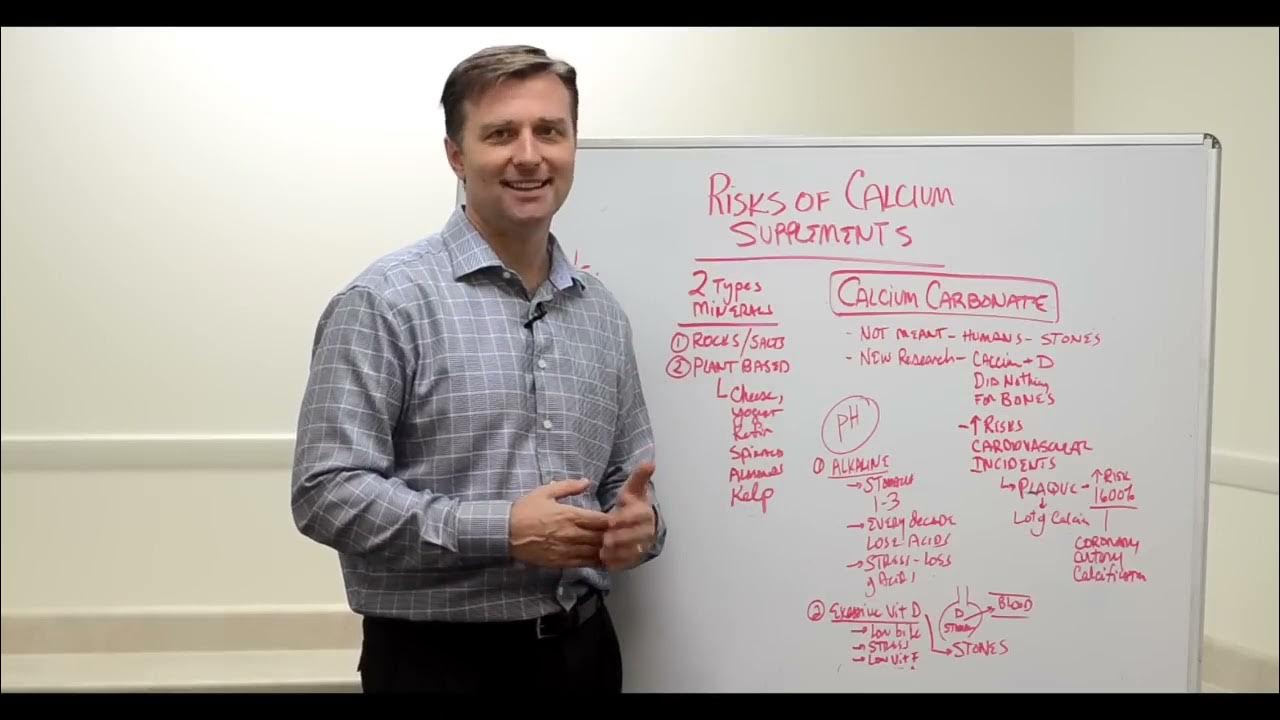 RISKS OF CALCIUM
SUPPLEMENTS
2 TYPES
MINERALS
① ROCKS/SALTS
② PLANT BASED
Cheese,
yogurt
Kefir
SPINACH
ALMONDS
Kelp
CALCIUM CARBONATE
- NOT MEANT - HUMANS - STONES
- NEW RESEARCH - CALCIUM + D
DID NOTHING
FOR BONES
- ↑ RISKS
CARDIOVASCULAR
INCIDENTS
↳ PLAQUE - ↑ RISK
1600%
Lot of Calcium
CORONARY
artery
Calcification
PH
① ALKALINE
→ STOMACH
1-3
→ EVERY DECADE
LOSE ACIDS
→ STRESS - LOSS
of ACIDS
② EXCESSIVE VIT D
→ LOW BILE
→ STRESS
→ LOW VIT F
→ STONES
D
BLOOD